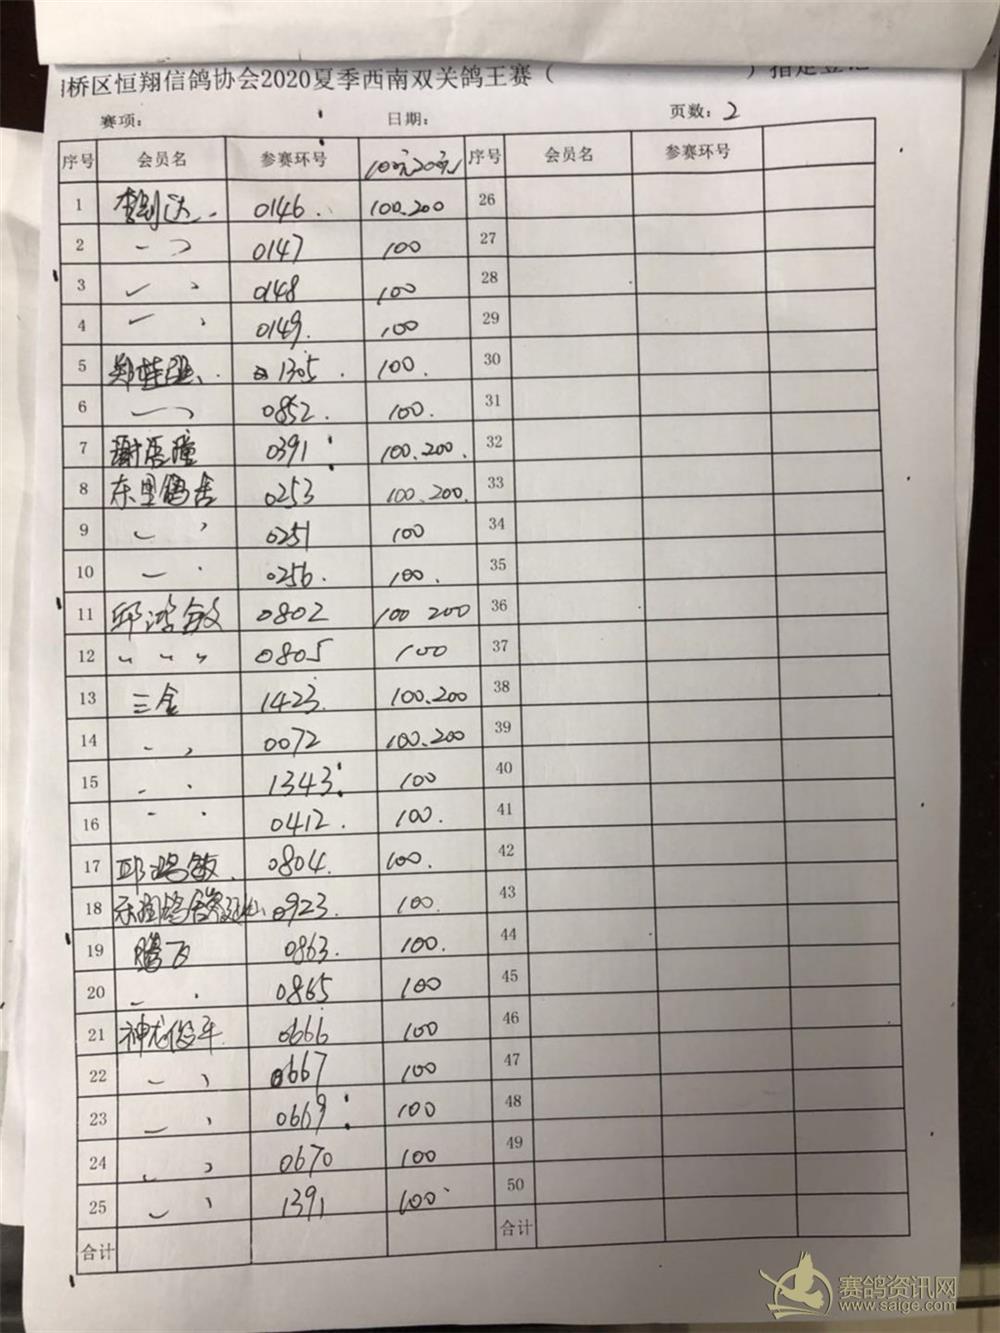 桥区恒翔信鸽协会2020夏季西南双关鸽王赛（ ）指定登记
赛项： 日期： 页数：2
序号 会员名 参赛环号 100元200元 序号 会员名 参赛环号
1 李刚达 0146. 100.200 26
2 0147 100 27
3 〃 0148 100 28
4 〃 0149. 100 29
5 1305. 100. 30
6 〃 0852. 100. 31
7 0391 100.200. 32
8 东里鸽舍 0253 100.200. 33
9 〃 0251 100 34
10 〃 0256. 100. 35
11 邱鸿敏 0802 100 200 36
12 〃 〃 〃 0805 100 37
13 三金 1423. 100.200 38
14 〃 0072 100.200 39
15 〃 1343. 100 40
16 〃 0412. 100. 41
17 邱鸿敏. 0804. 100. 42
18 0923. 100. 43
19 腾飞 0863. 100. 44
20 〃 0865 100 45
21 神龙 0666 100 46
22 〃 0667 100 47
23 〃 0669 100 48
24 〃 0670 100 49
25 〃 1391 100 50
合计 合计
赛鸽资讯网
www.saige.com